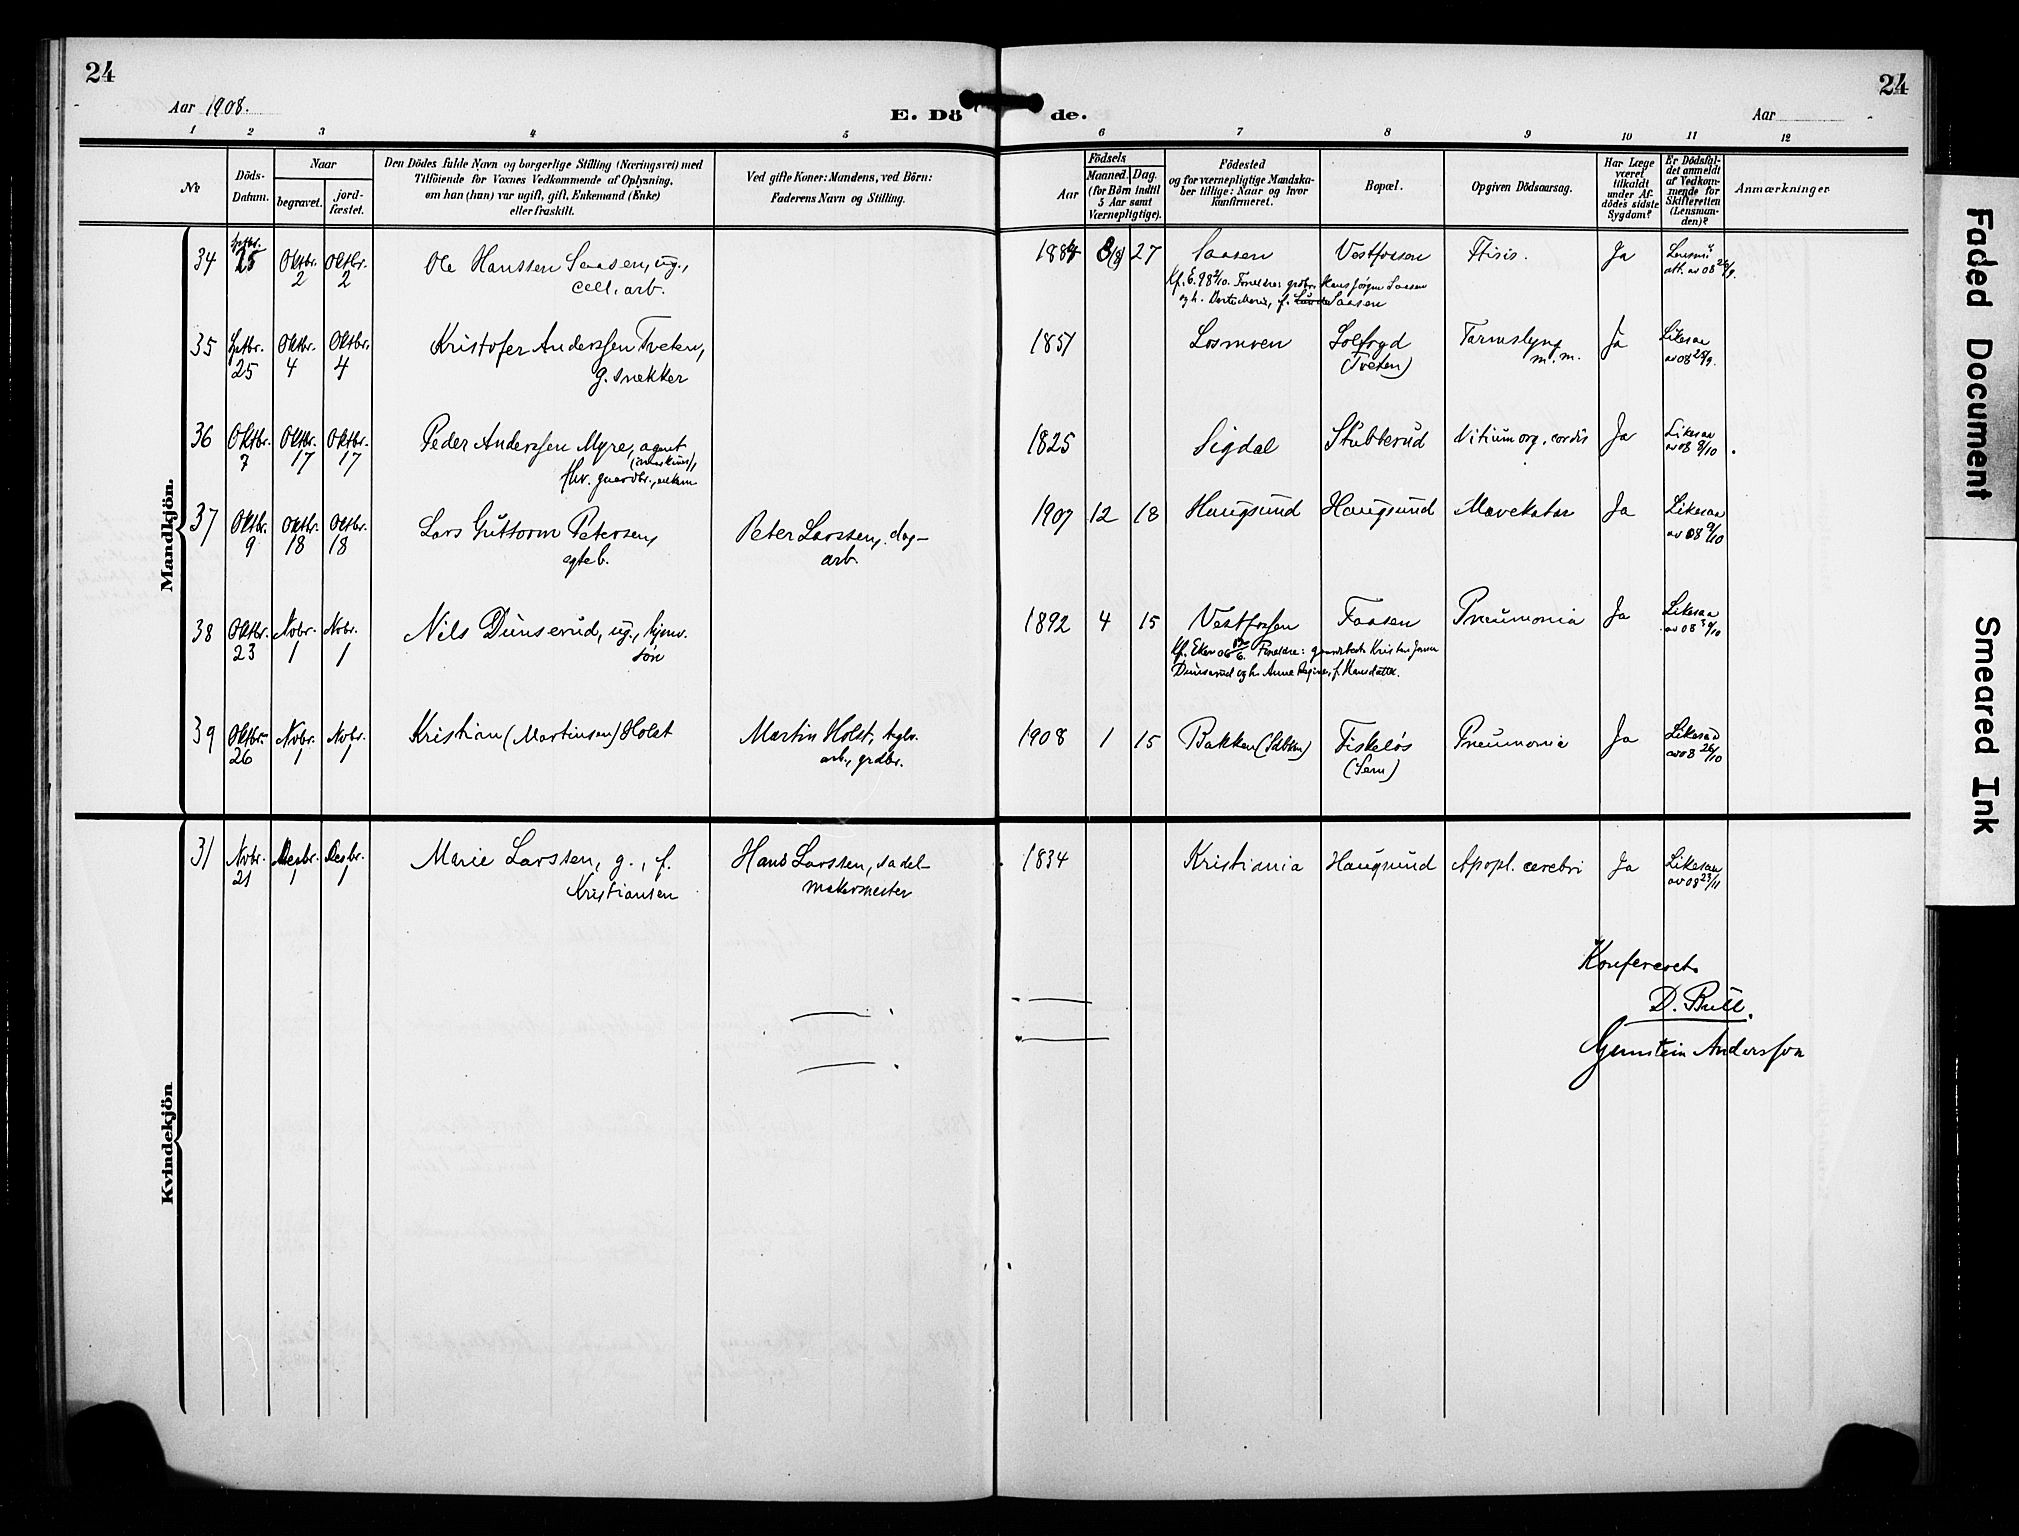 24
Aar 1908.
E. Dö
1 2 3 4 5
№
Döds-
Datum.
Naar
begravet.
jord-
fæstet.
Den Dödes fulde Navn og borgerlige Stilling (Næringsvei) med
Tilföiende for Voxnes Vedkommende af Oplysning,
om han (hun) var ugift, gift, Enkemand (Enke)
eller fraskilt.
Ved gifte Koner: Mandens, ved Börn:
Faderens Navn og Stilling.
Mandkjön.
34 Septbr. 25 Oktbr. 2 Oktbr. 2 Ole Hanssen Saasen, ug.,
cell. arb.
35 Septbr. 25 Oktbr. 4 Oktbr. 4 Kristofer Anderssen Tveten,
g. snekker
36 Oktbr. 7 Oktbr. 17 Oktbr. 17 Peder Anderssen Myre, agent
(i maskiner),
fhv. gaardbr., enkem
37 Oktbr. 9 Oktbr. 18 Oktbr. 18 Lars Guttorm Petersen, Peter Larssen, dag-
egteb. arb.
38 Oktbr. 23 Novbr. 1 Novbr. 1 Nils Dunserud, ug., hjem.
søn
39 Oktbr. 26 Novbr. 1 Novbr. 1 Kristian (Martinsen) Holst Martin Holst,
arb., grdbr.
Kvindekjön
31 Novbr. 21 Decbr. 1 Decbr. 1 Marie Larssen, g., f. Hans Larssen, sadel-
Kristiansen makermester
24
de.
Aar
6 7 8 9 10 11 12
Födsels
Aar
Maaned. Dag.
(for Börn indtil
5 Aar samt
Værnepligtige).
Födested
og for værnepligtige Mandska-
ber tillige: Naar og hvor
konfirmeret.
Bopæl.
Opgiven Dödsaarsag.
Har Læge
været
tilkaldt
under Af-
dödes sidste
Sygdom?
Er Dödsfal-
det anmeldt
af Vedkom-
mende for
Skifteretten
(Lensman-
den)?
Anmærkninger
1884 8 27 Saasen Vestfossen Ftisis. Ja Lensm.
att. av 08 26/9.
Kf. E. 98 2/10. Foreldre: grdbr. Hans Jørgen Saasen
og h. Dorte Marie, f. Saasen
1851 Losmoen Solfogd Tarmslyng Ja Likesaa
(Tveten) m. m. av 08 28/9.
1825 Sigdal Stubberud Vitium org. cordis Ja Likesaa
av 08 8/10
1907 12 18 Haugsund Haugsund Mavekatar Ja Likesaa
av 08 9/10
1892 4 15 Vestfossen Faasen Pneumonia Ja Likesaa
av 08 /10
Kf. Eker 06 /6. Foreldre: Kristen
Dunserud og h. Anne Regine, f. Hansdatter.
1908 1 15 Bakken Fiskeløs Pneumonia Ja Likesaa
(Sem) av 08 26/10
1834 Kristiania Haugsund Apopl. cerebri Ja Likesaa
av 08 23/11
Konfereret
D. Bull.
Gunstein Anderssøn
Faded Document
Smeared Ink